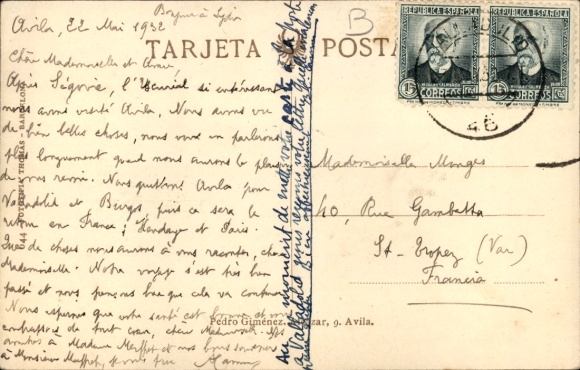 Avila, 22 Mai 1932
TARJETA POSTAL
B
REPUBLICA ESPAÑOLA
REPUBLICA ESPAÑOLA
15 CORREOS 15 Cts
CORREOS 15 Cts
VALLADOLID
4B
Chère Mademoiselle et Amie
Après Ségovie, l'Escurial si intéressant
nous avons visité Avila. Nous avons vu
de bien belles choses, nous vous en parlerons
plus longuement quand nous aurons le plaisir
de vous revoir. Nous quittons Avila pour
Valladolid et Burgos, puis ce sera le
retour en France, Hendaye et Paris.
Que de choses nous aurons à vous raconter, chère
Mademoiselle. Notre voyage s'est très bien
passé et nous pensons bien que cela va continuer
Nous espérons que votre santé est bonne et vous
embrassons de tout cœur, chère Mademoiselle.
à Madame et nos bons souvenirs
à Monsieur
au moment de mettre votre carte à la poste
à Valladolid nous recevons votre lettre
Mademoiselle Monges
40, Rue Gambetta
St-Tropez (Var)
Francia
644 FOTOTIPIA THOMAS - BARCELONA
Pedro Giménez, 9. Avila.